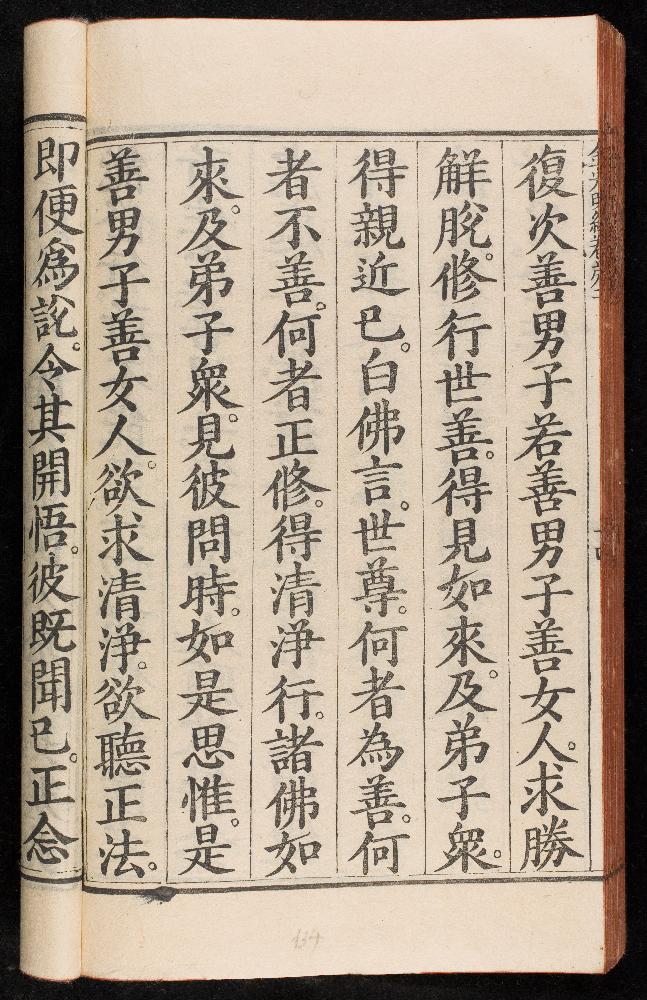 復次善男子若善男子善女人。求勝
解脫。修行世善。得見如來。及弟子衆。
得親近已。白佛言。世尊。何者為善。何
者不善。何者正修。得清淨行。諸佛如
來。及弟子衆。見彼問時。如是思惟。是
善男子善女人。欲求清淨。欲聽正法。
即便爲說。令其開悟。彼既聞已。正念
134